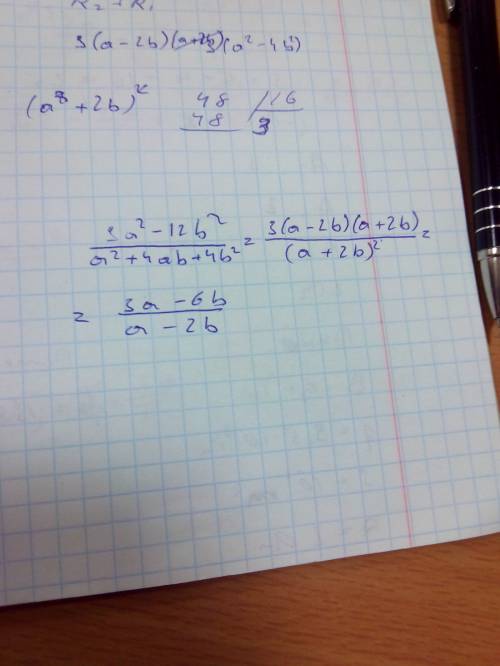 3(a-2b)(a+2b)(a²-4b²)
(a⁸+2b)² 48 /16
48 3
3a²-12b² / a²+4ab+4b² = 3(a-2b)(a+2b) / (a+2b)² =
= 3a-6b / a-2b